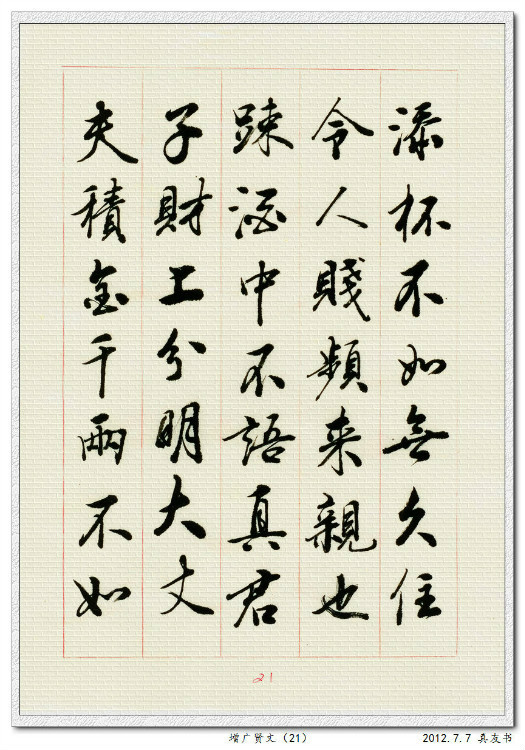 添杯不如無久住
令人賤頻来親也
踈酒中不語真君
子財上分明大丈
夫積金千兩不如
21
增广贤文（21）
2012.7.7 真友书